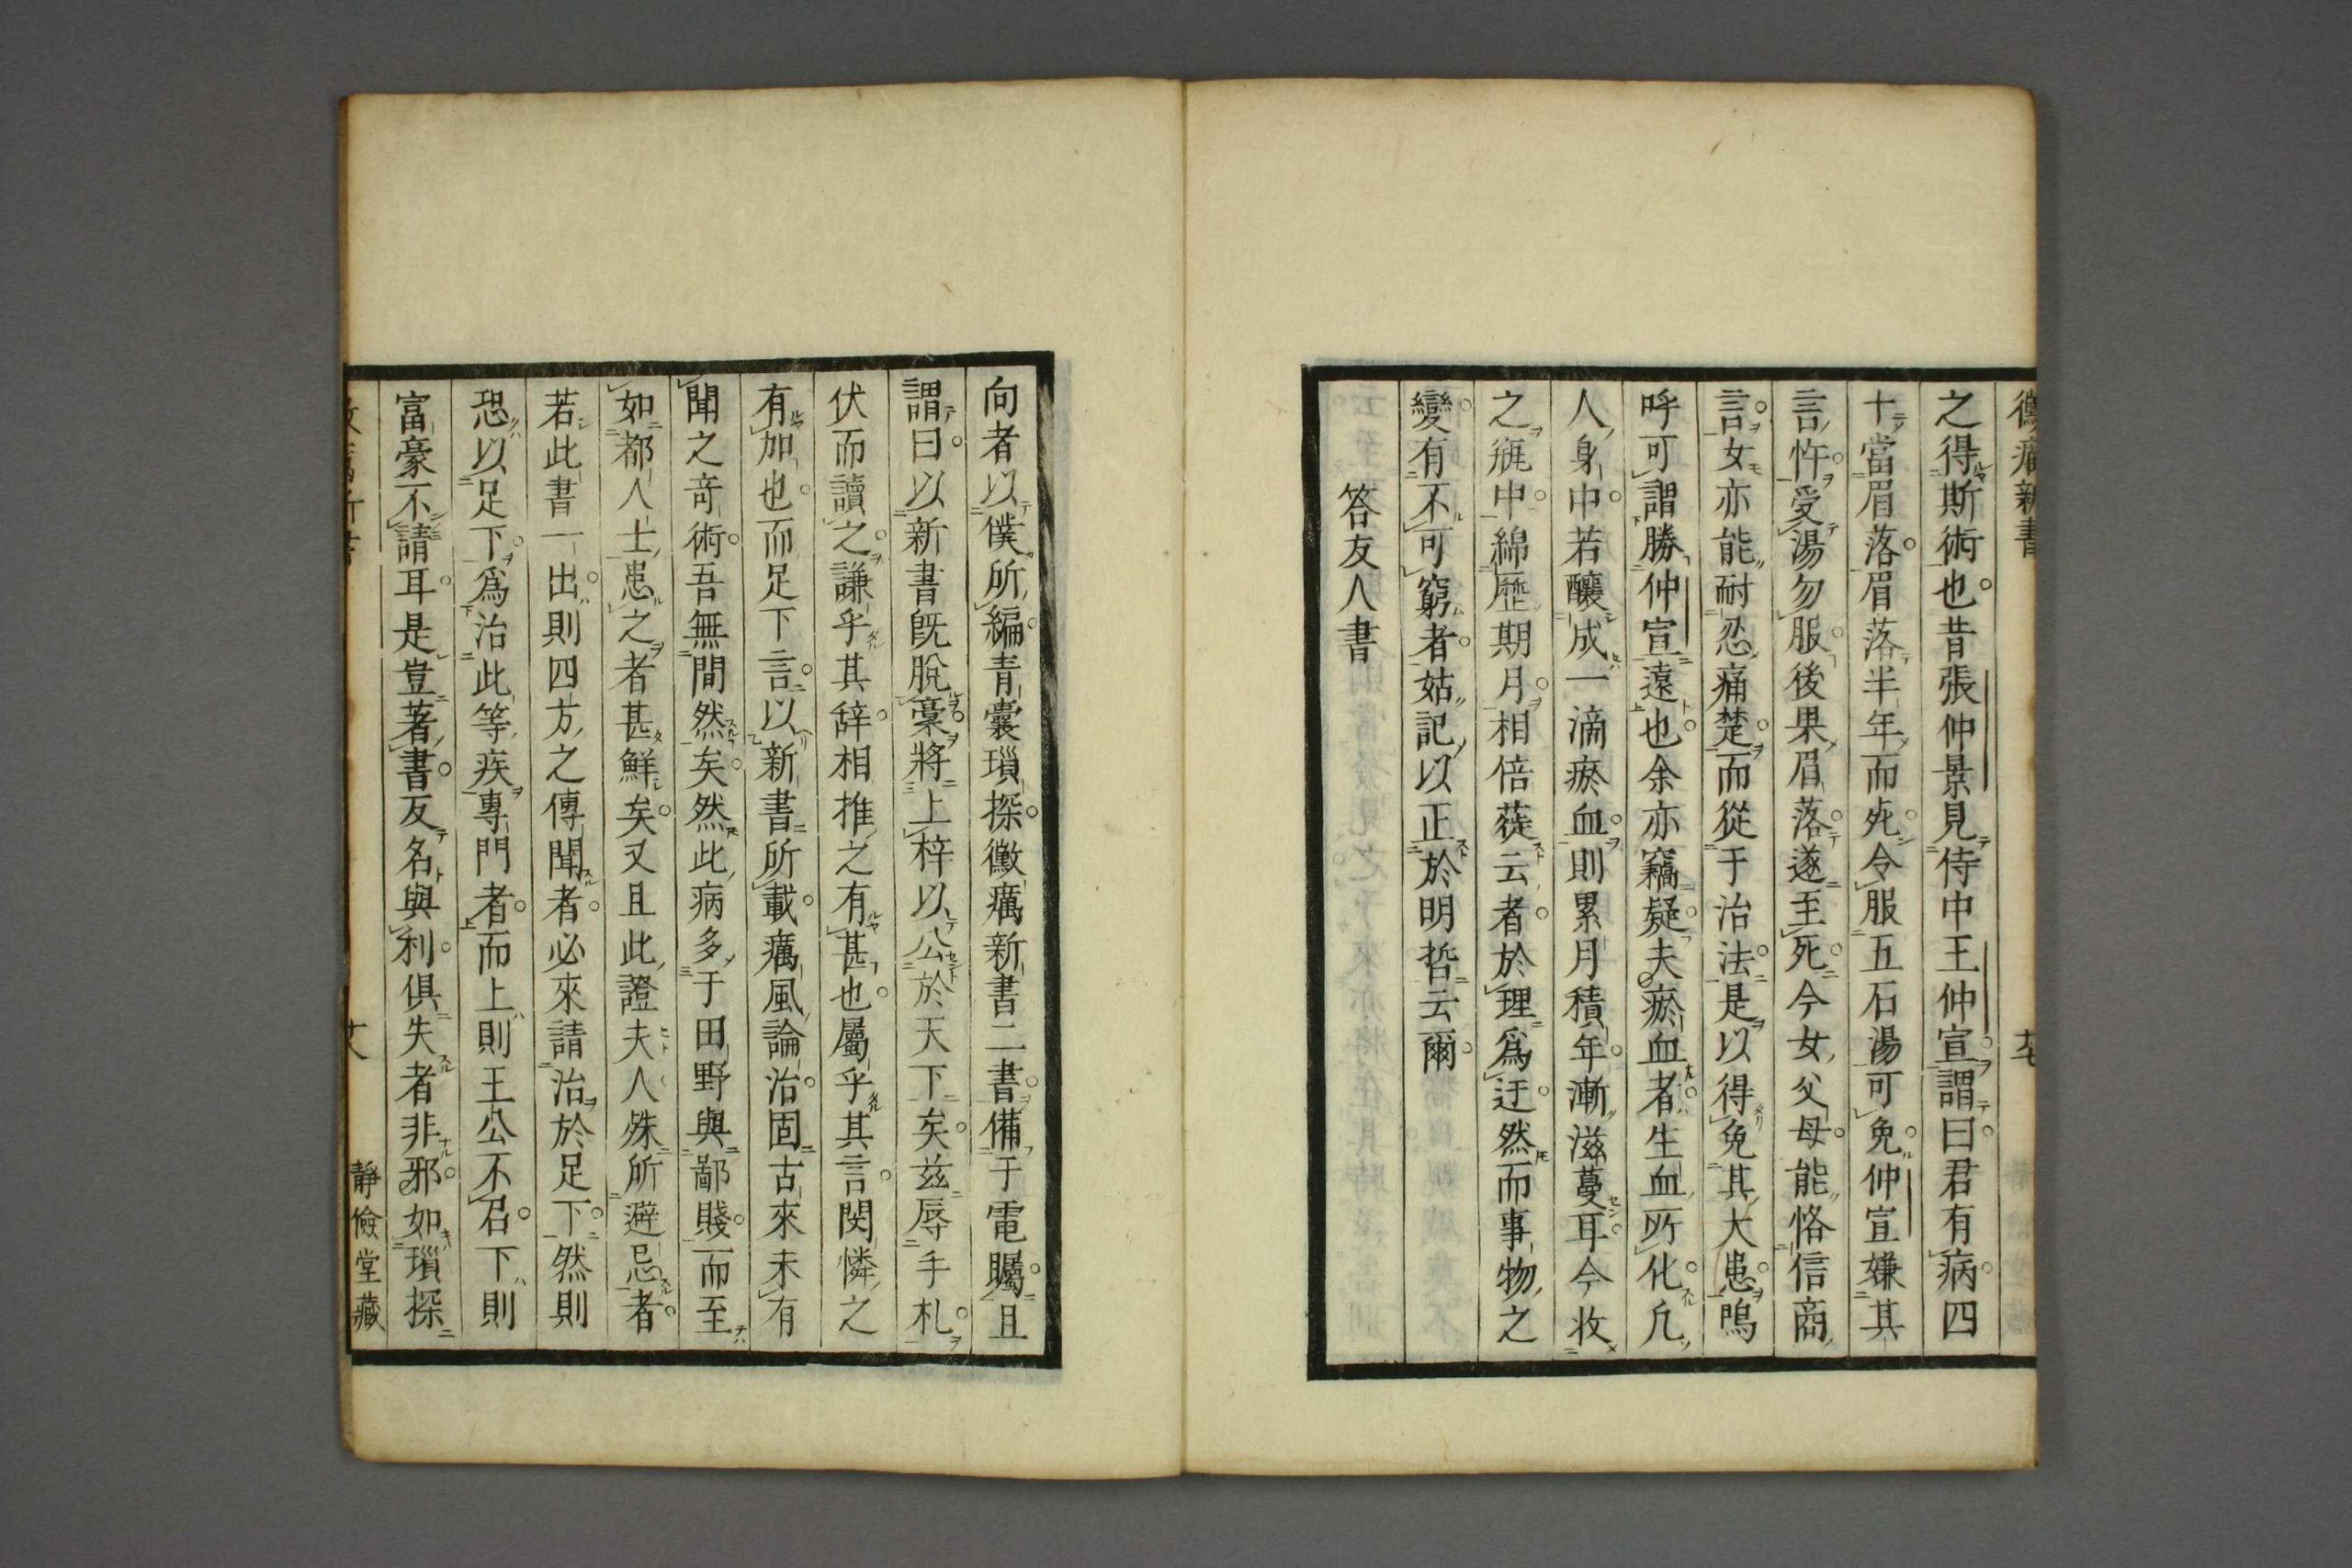 黴癘新書
之得斯術也昔張仲景見侍中王仲宣謂曰君有病四
十當眉落眉落半年而死令服五石湯可免仲宣嫌其
言忤受湯勿服後果眉落遂至死今女父母能恪信商
言女亦能耐忍痛楚而從于治法是以得免其大患嗚
呼可謂勝仲宣遠也余亦竊疑夫瘀血者生血所化凢
人身中若釀成一滴瘀血則累月積年漸滋蔓耳今收
之瓶中綿歷期月相倍蓰云者於理爲迂然而事物之
變有不可窮者姑記以正於明哲云爾
答友人書
向者以僕所編青囊瑣探黴癘新書二書備于電矚且
謂曰以新書既脫稾將上梓以公於天下矣兹辱手札
伏而讀之謙乎其辞相推之有甚也屬乎其言閔憐之
有加也而足下言以新書所載癘風論治固古來未有
聞之竒術吾無間然矣然此病多于田野與鄙賤而至
如都人士患之者甚鮮矣又且此證夫人殊所避忌者
若此書一出則四方之傳聞者必來請治於足下然則
恐以足下爲治此等疾專門者而上則王公不召下則
富豪不請耳是豈著書反名與利俱失者非邪如瑣探
靜儉堂藏